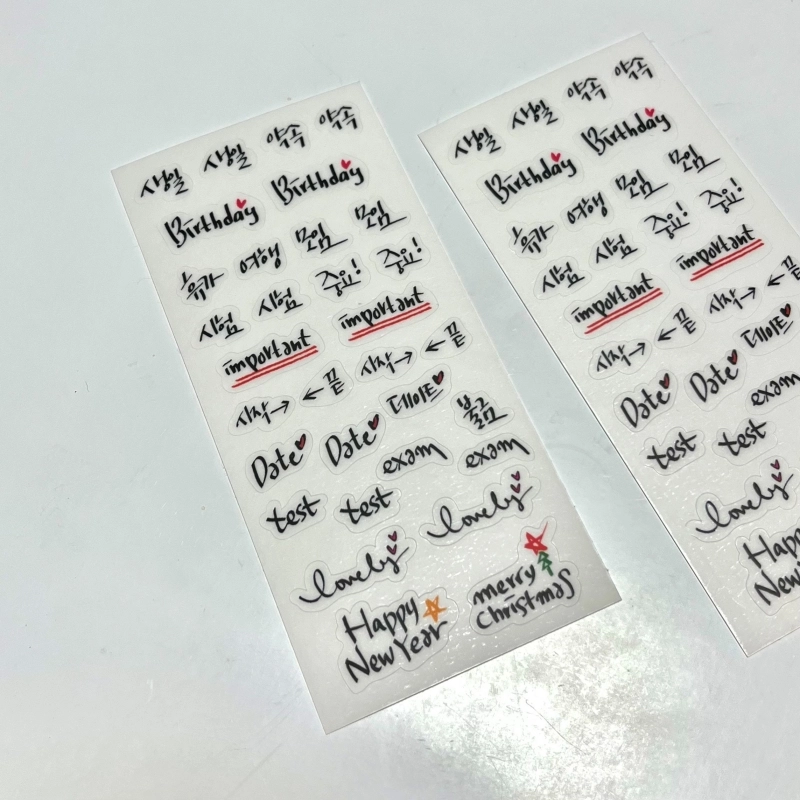 생일 생일 약속 약속
Birthday Birthday
휴가 여행 모임 모임
시험 시험 중요! 중요!
important important
시작→ ←끝 시작→ ←끝
Date Date 데이트 불금
exam exam
test test
lovely lovely
Happy New Year
merry Christmas
생일 생일 약속 약속
Birthday Birthday
휴가 여행 모임 모임
시험 시험 중요! 중요!
important important
시작→ ←끝 시작→ ←끝
Date Date 데이트
exam
test test
lovely
Happy
New